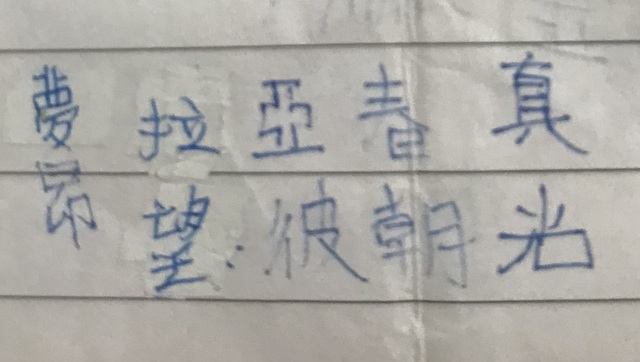 夢拉亞春真
昂望.彼朝光